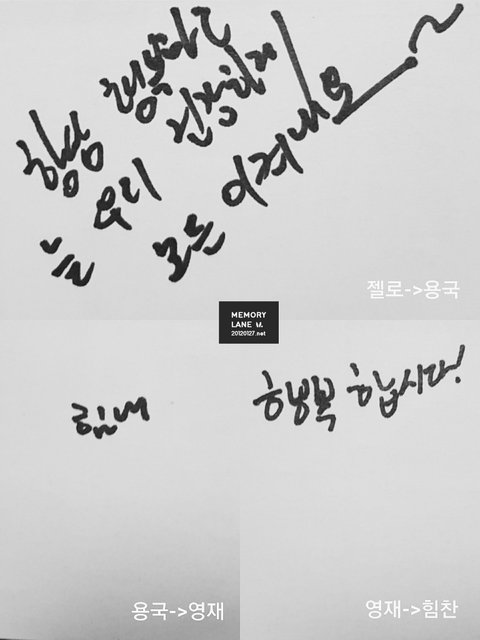 항상 행복하고
늘 우리
이겨내요~
젤로->용국
MEMORY
LANE u.
20120127.net
힘내
용국->영재
행복 합시다!
영재->힘찬